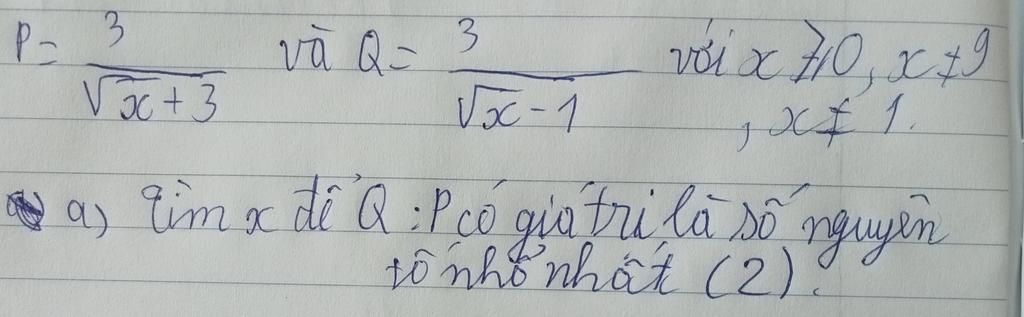 P = 3/(√x + 3) và Q = 3/(√x - 1) với x ≥ 0, x ≠ 9
, x ≠ 1.
a) Tìm x để Q : P có giá trị là số nguyên
tố nhỏ nhất (2).